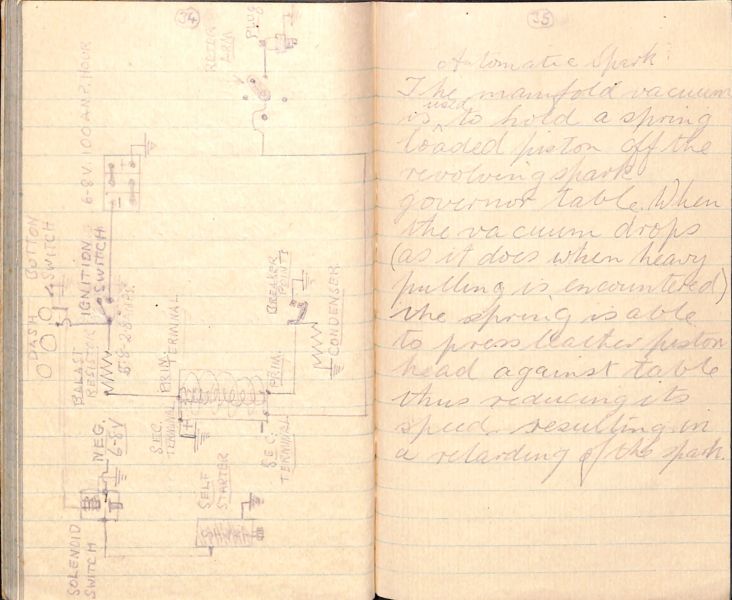 34
ROTER
ARM
PLUG
6-8V. 100 AMP. HOUR
DASH BUTTON
SWITCH
IGNITION
SWITCH
BALAST
RESISTOR
PRIM.
TERMINAL
BREAKER
POINTS
CONDENSER
PRIM.
SEC.
TERMINAL
SEC.
TERMINAL
NEG.
6-8V
SELF
STARTER
SOLENOID
SWITCH
35
Automatic Spark
The manifold vacuum
is used to hold a spring
loaded piston off the
revolving spark
governor table. When
the vacuum drops
(as it does when heavy
pulling is encountered)
the spring is able
to press leather piston
head against table
thus reducing its
speed resulting in
a retarding of the spark.